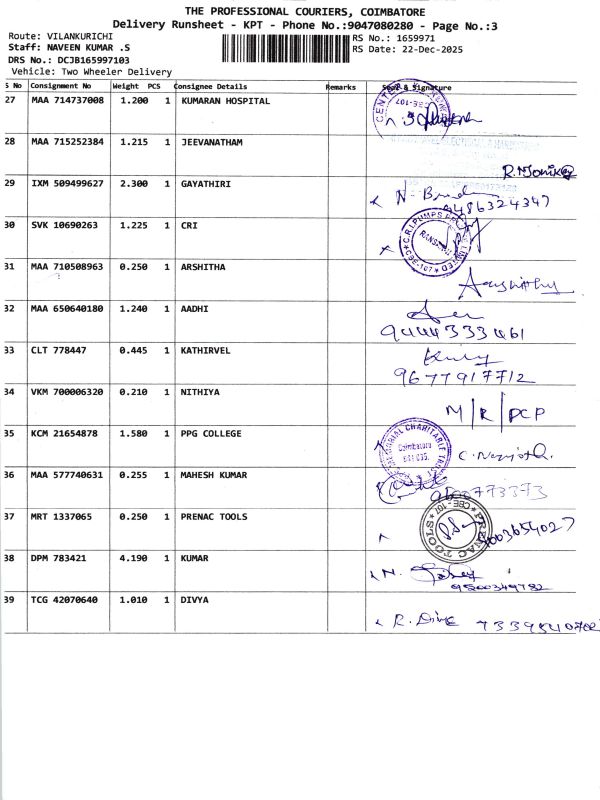 THE PROFESSIONAL COURIERS, COIMBATORE
Delivery Runsheet - KPT - Phone No.:9047080280 - Page No.:3
Route: VILANKURICHI RS No.: 1659971
Staff: NAVEEN KUMAR .S RS Date: 22-Dec-2025
DRS No.: DCJB165997103
Vehicle: Two Wheeler Delivery
S No Consignment No Weight PCS Consignee Details Remarks Seal & Signature
27 MAA 714737008 1.200 1 KUMARAN HOSPITAL
28 MAA 715252384 1.215 1 JEEVANATHAM
29 IXM 509499627 2.300 1 GAYATHIRI 9486324347
30 SVK 10690263 1.225 1 CRI C.R.I.PUMPS CBE-107
31 MAA 710508963 0.250 1 ARSHITHA
32 MAA 650640180 1.240 1 AADHI 9444333461
33 CLT 778447 0.445 1 KATHIRVEL 9677917712
34 VKM 700006320 0.210 1 NITHIYA M/R/DCP
35 KCM 21654878 1.580 1 PPG COLLEGE Coimbatore
36 MAA 577740631 0.255 1 MAHESH KUMAR
37 MRT 1337065 0.250 1 PRENAC TOOLS PRENAC TOOLS CBE-107
38 DPM 783421 4.190 1 KUMAR 9500349782
39 TCG 42070640 1.010 1 DIVYA R. Divya